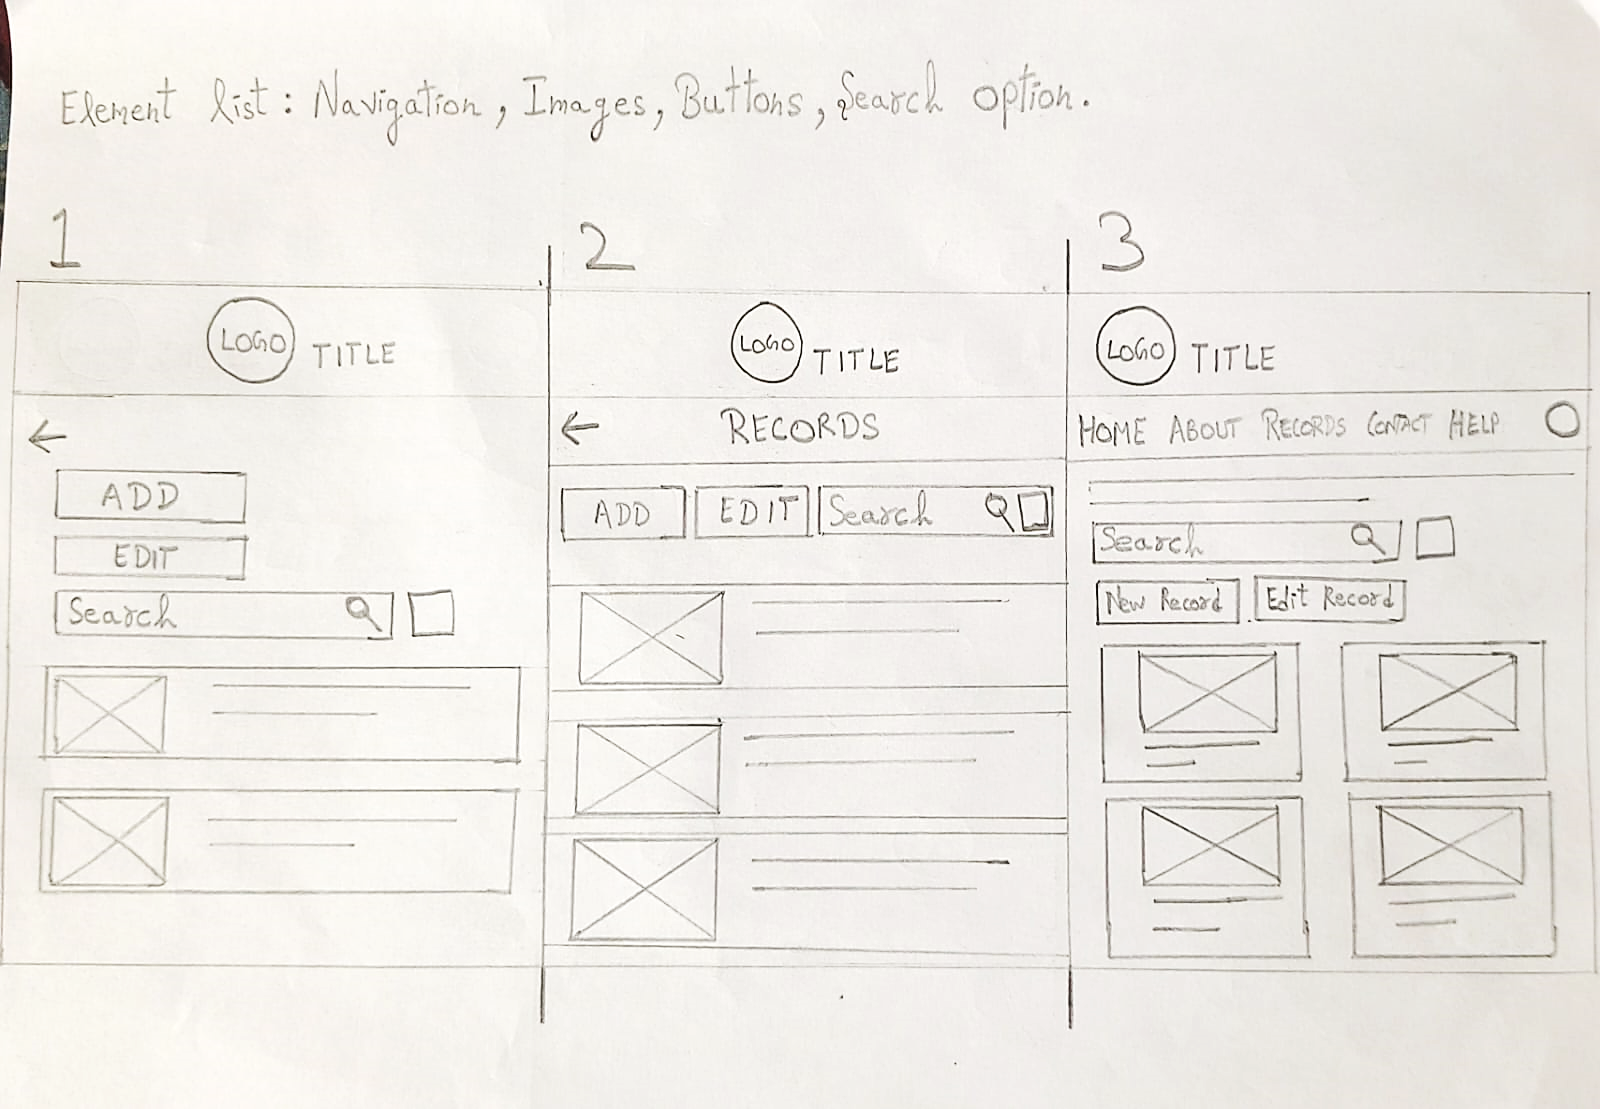 Element list: Navigation, Images, Buttons, Search option.
1
LOGO TITLE
ADD
EDIT
Search
2
LOGO TITLE
RECORDS
ADD EDIT Search
3
LOGO TITLE
HOME ABOUT RECORDS CONTACT HELP
Search
New Record Edit Record